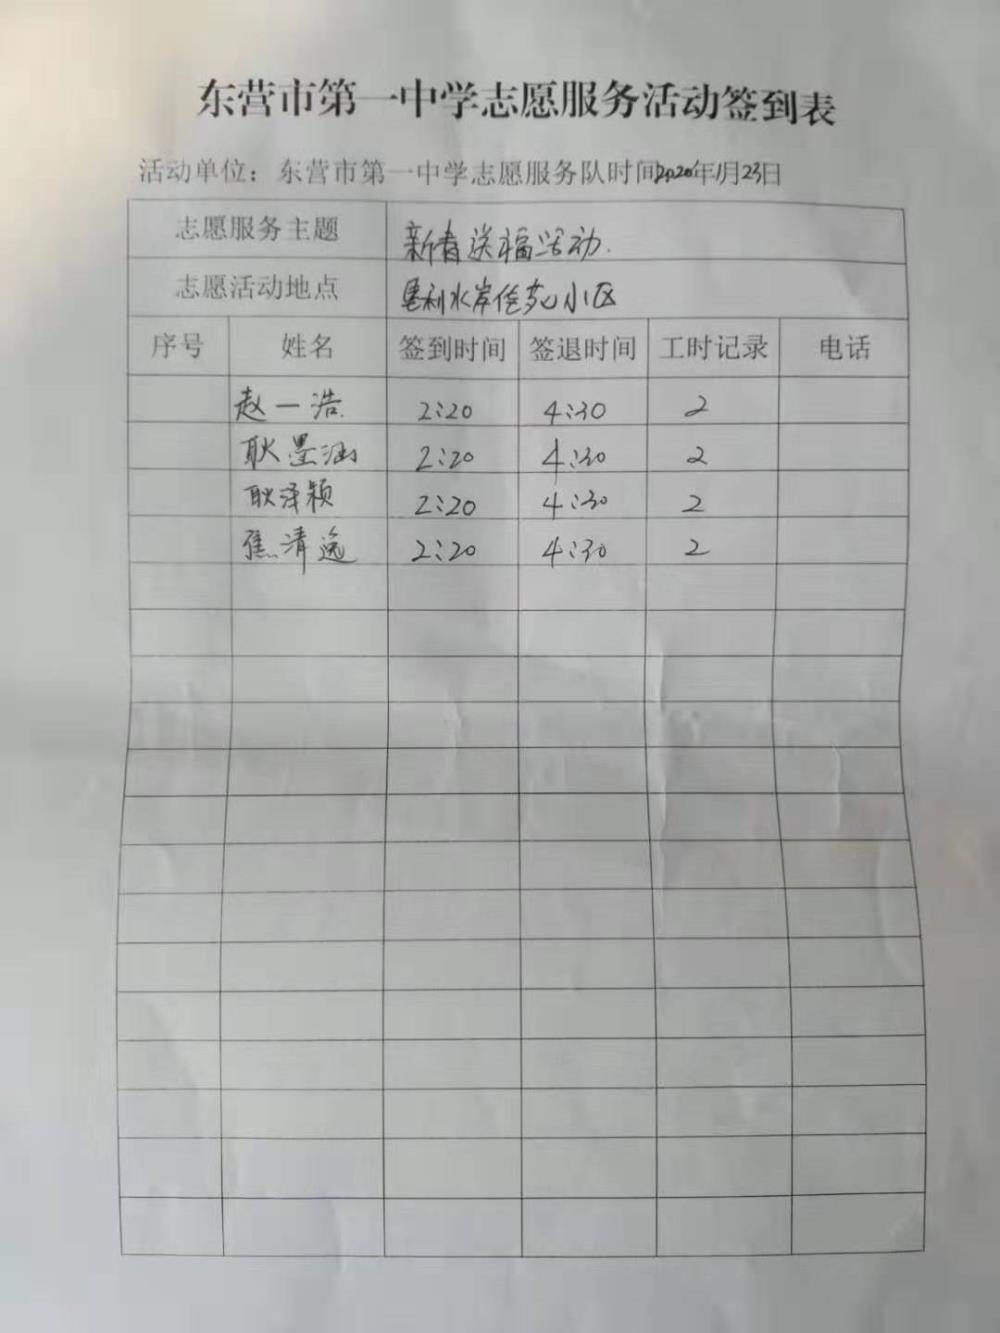 东营市第一中学志愿服务活动签到表
活动单位：东营市第一中学志愿服务队时间2020年1月23日
志愿服务主题 新春送福活动.
志愿活动地点 垦利水岸佳苑小区
序号 姓名 签到时间 签退时间 工时记录 电话
赵一浩 2:20 4:30 2
耿墨涵 2:20 4:30 2
耿泽颖 2:20 4:30 2
焦清逸 2:20 4:30 2